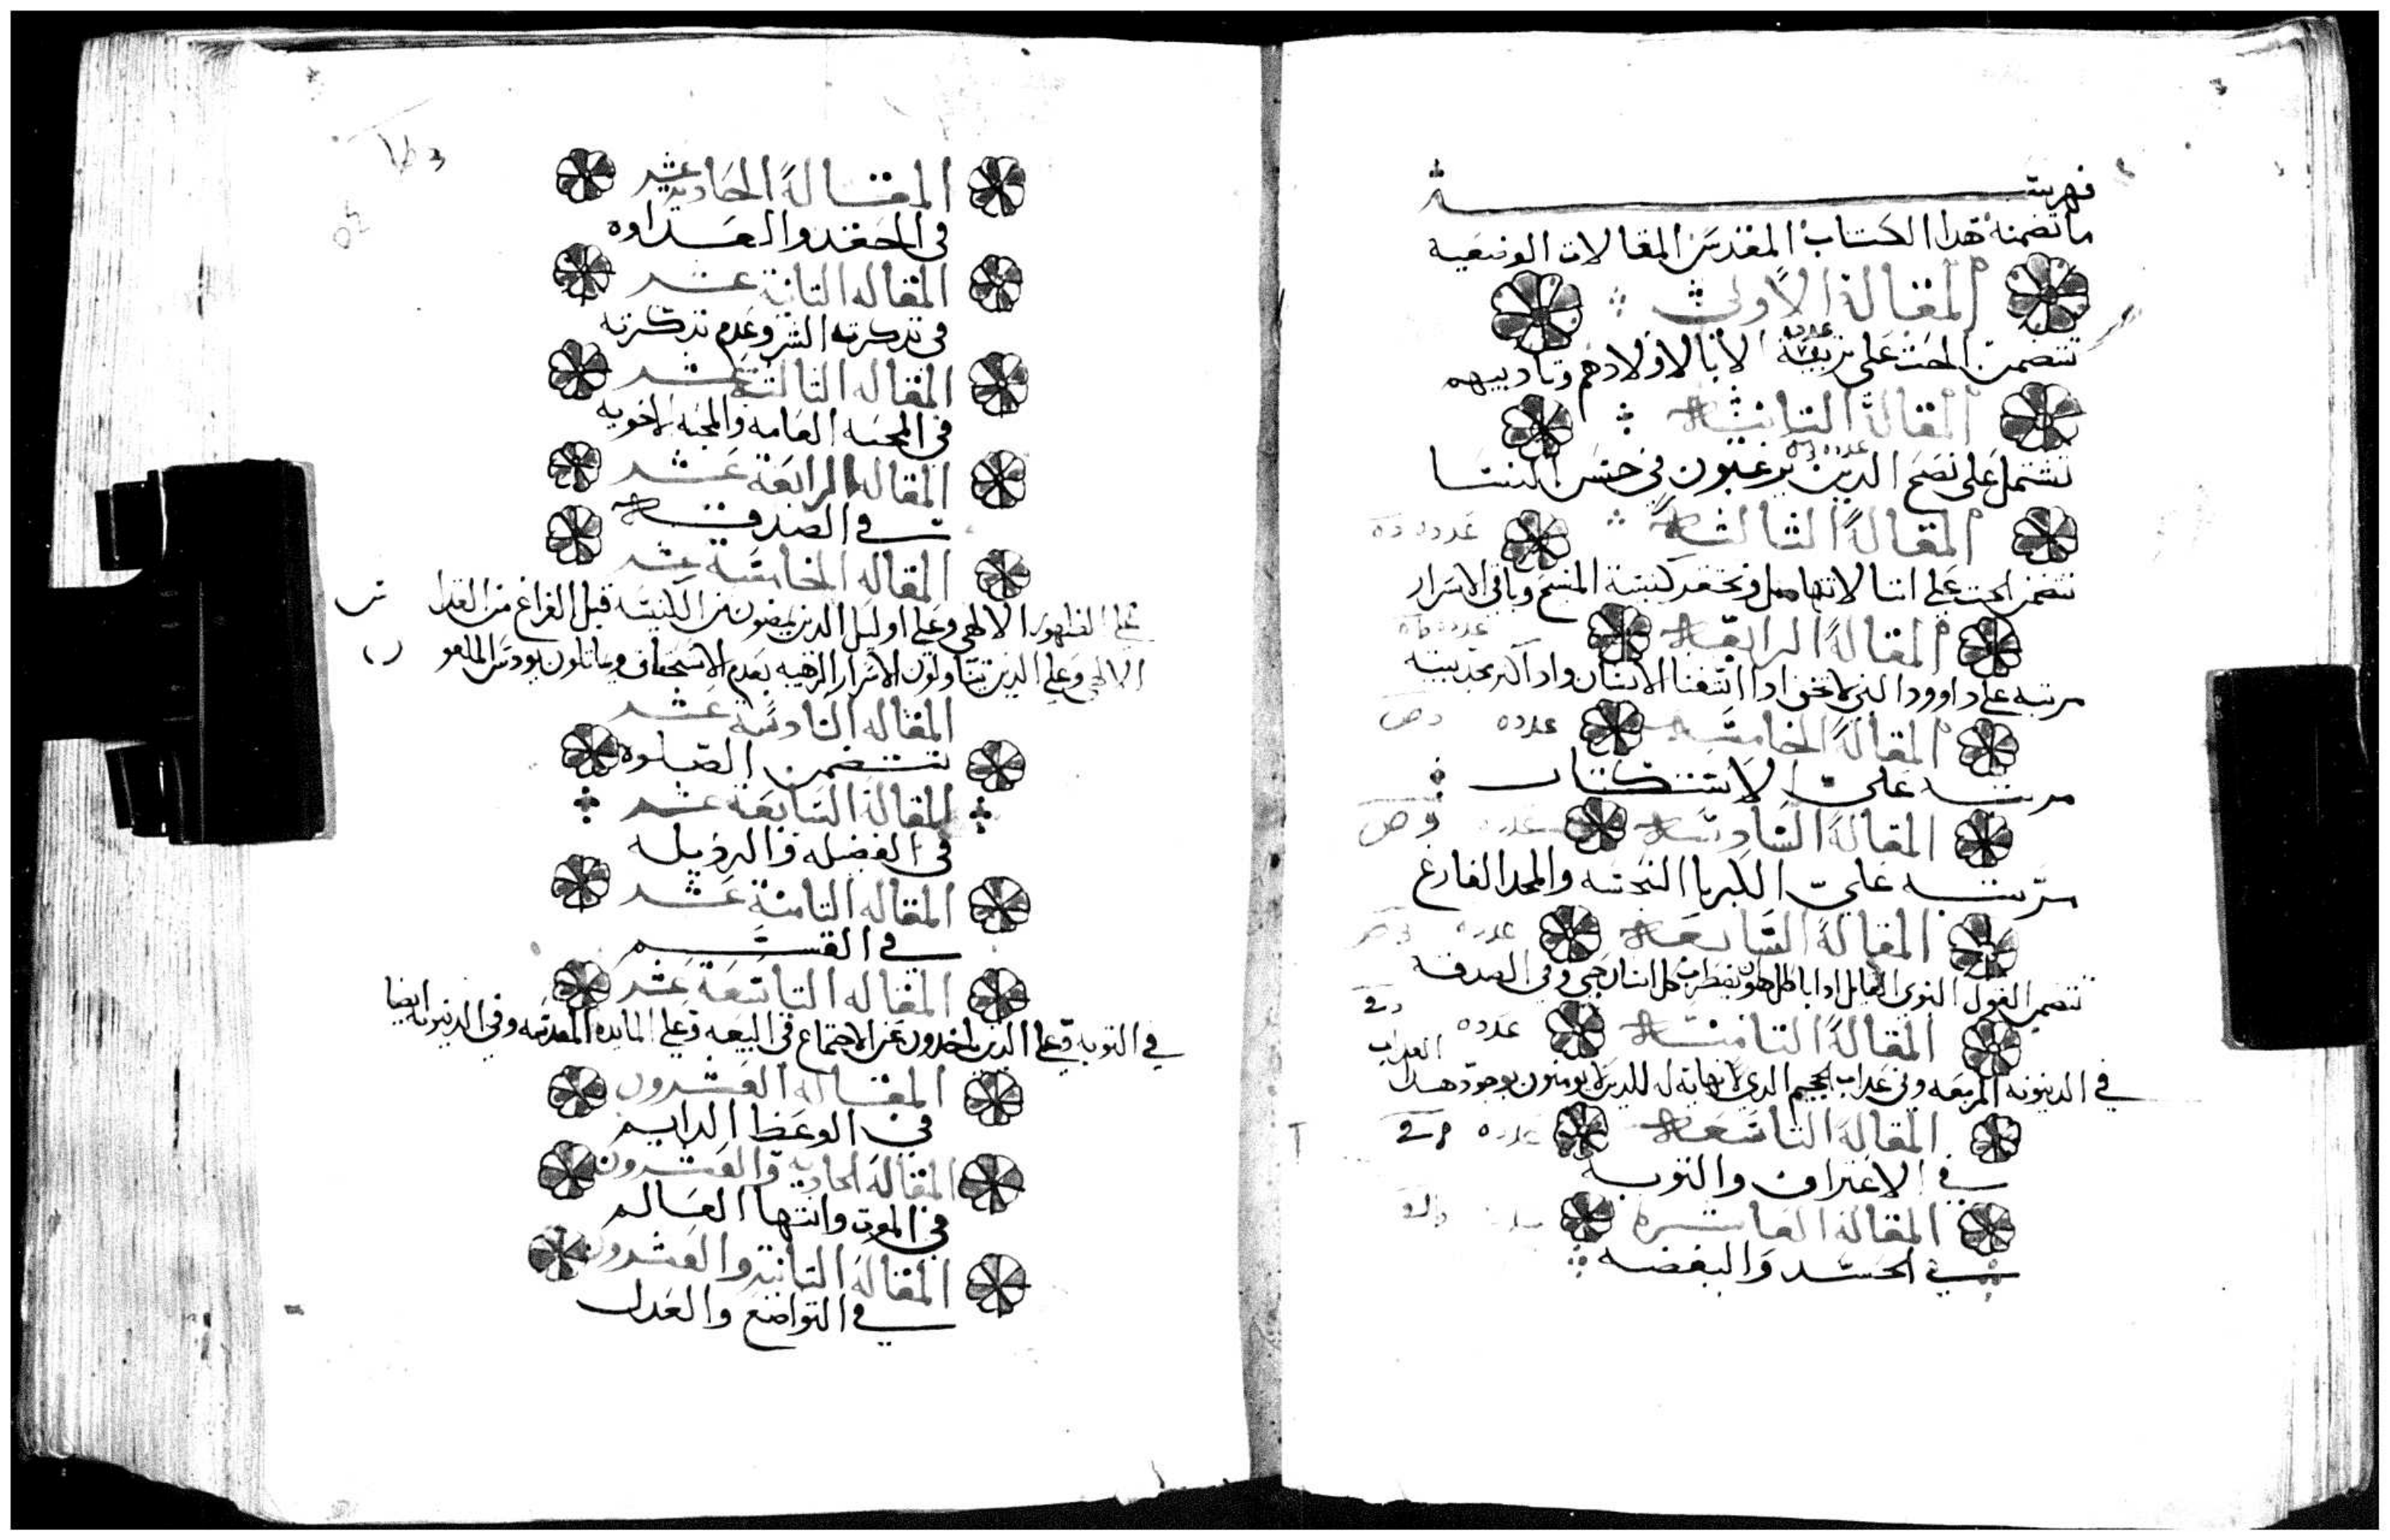 فهرست
ما تضمنه هدا الكتاب المقدس المقالات الوضعيه
المقالة الاولى
تتضمن الحث على تربية الابا لاولادهم وتاديبهم
عدده
المقالة الثانية
تشتمل على نصح الدين يرغبون في حسن النسا
عدده
المقالة الثالثة
عدده
تتضمن الحث على اننا لا نتهامل ونحتقر كنيسة المسيح وباقي الاسرار
المقالة الرابعة
عدده
مرتبه على داوود النبي لا تخف ادا استغنا الانسان وادا كتر مجد بيته
المقالة الخامسة
عدده
مرتبه على الاستكتار
المقالة السادسة
عدده
مرتبه على الكبريا النجسه والمجد الفارغ
المقالة السابعة
عدده
تتضمن القول النبوي القايل ادا باطل هو يضطرب كل انسان حي وفي الصدقه
المقالة الثامنة
عدده
في الدينونه المريعه وفي عداب الجحيم الدي لا نهاية له للدين لا يومنون بوجود هدا
العداب
المقالة التاسعة
عدده
في الاعتراف والتوبه
المقالة العاشره
في الحسد والبغضه
المقالة الحادية عشر
في الحقد والعداوه
المقاله التانية عشر
في تدكرته الشر وعدم تدكرته
المقاله التالتة عشر
في المحبه العامه والمحبه الاخويه
المقاله الرابعة عشر
في الصدقه
المقاله الخامسة عشر
على الظهور الالهي وعلى اوليك الدين يمضون من الكنيسه قبل الفراغ من القداس
الالهي وعلى الدين يتناولون الاسرار الرهيبه بعدم الاستحقاق ويماتلون يودس الملعون
المقاله السادسة عشر
تتضمن الصلوه
المقالة السابعة عشر
في الفضله والرديله
المقاله التامنة عشر
في القسم
المقاله التاسعة عشر
في التوبه وعلى الدين ياخدون عن الاجتماع في البيعه وعلى المايده المقدسه وفي الدينونه ايضا
المقاله العشرون
في الوعظ الدايم
المقالة الحادية والعشرون
في الموت وانتها العالم
المقالة التانية والعشرون
في التواضع والعدل